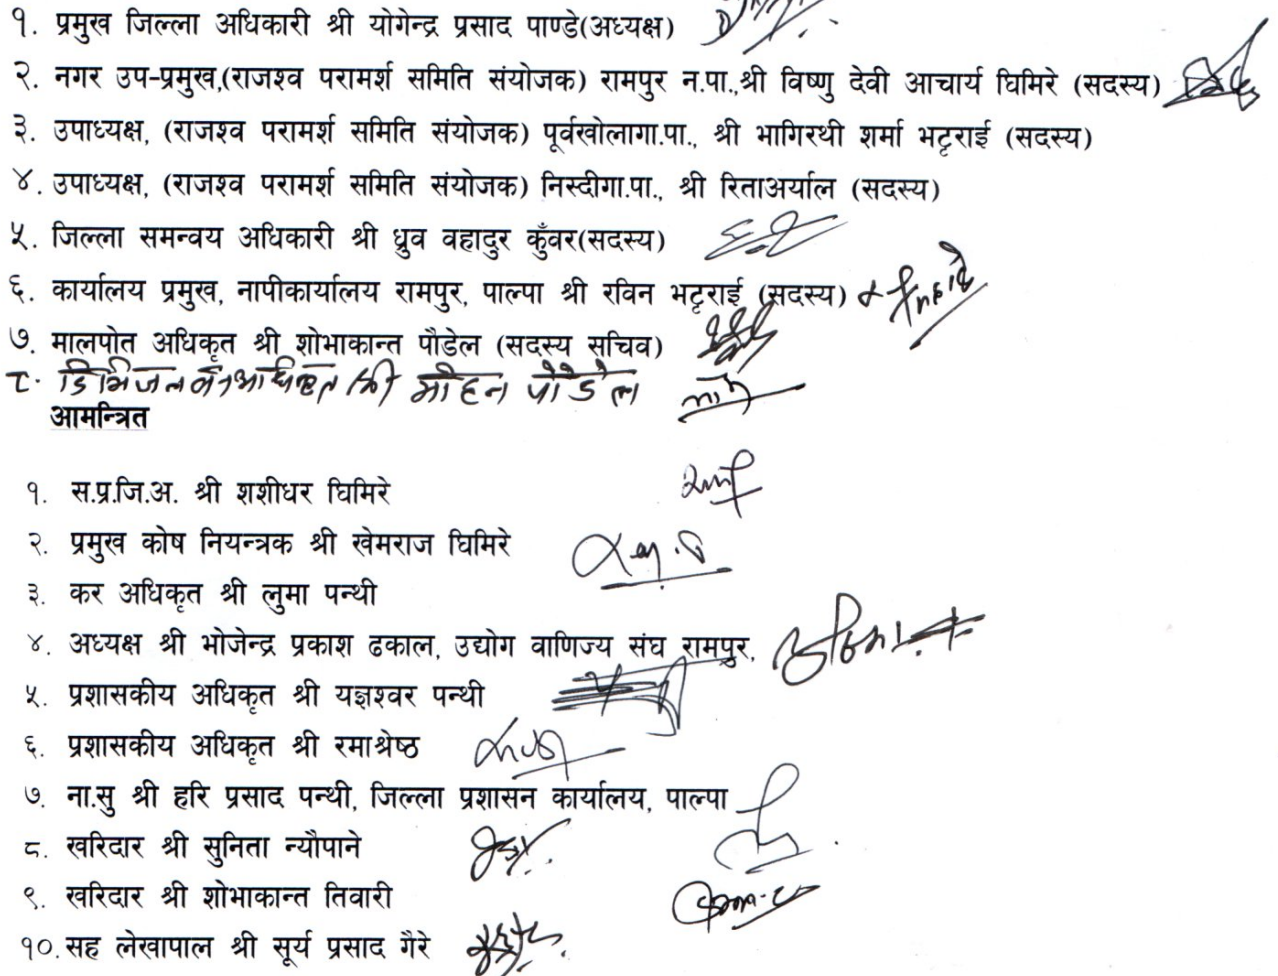 १. प्रमुख जिल्ला अधिकारी श्री योगेन्द्र प्रसाद पाण्डे(अध्यक्ष)
२. नगर उप-प्रमुख,(राजश्व परामर्श समिति संयोजक) रामपुर न.पा.,श्री विष्णु देवी आचार्य घिमिरे (सदस्य)
३. उपाध्यक्ष, (राजश्व परामर्श समिति संयोजक) पूर्वखोलागा.पा., श्री भागिरथी शर्मा भट्टराई (सदस्य)
४. उपाध्यक्ष, (राजश्व परामर्श समिति संयोजक) निस्दीगा.पा., श्री रिताअर्याल (सदस्य)
५. जिल्ला समन्वय अधिकारी श्री ध्रुव वहादुर कुँवर(सदस्य)
६. कार्यालय प्रमुख, नापीकार्यालय रामपुर, पाल्पा श्री रविन भट्टराई (सदस्य)
७. मालपोत अधिकृत श्री शोभाकान्त पौडेल (सदस्य सचिव)
८. डिभिजन वन अधिकृत श्री मोहन पौडेल
आमन्त्रित
१. स.प्र.जि.अ. श्री शशीधर घिमिरे
२. प्रमुख कोष नियन्त्रक श्री खेमराज घिमिरे
३. कर अधिकृत श्री लुमा पन्थी
४. अध्यक्ष श्री भोजेन्द्र प्रकाश ढकाल, उद्योग वाणिज्य संघ रामपुर,
५. प्रशासकीय अधिकृत श्री यज्ञश्वर पन्थी
६. प्रशासकीय अधिकृत श्री रमाश्रेष्ठ
७. ना.सु श्री हरि प्रसाद पन्थी, जिल्ला प्रशासन कार्यालय, पाल्पा
८. खरिदार श्री सुनिता न्यौपाने
९. खरिदार श्री शोभाकान्त तिवारी
१०. सह लेखापाल श्री सूर्य प्रसाद गैरे